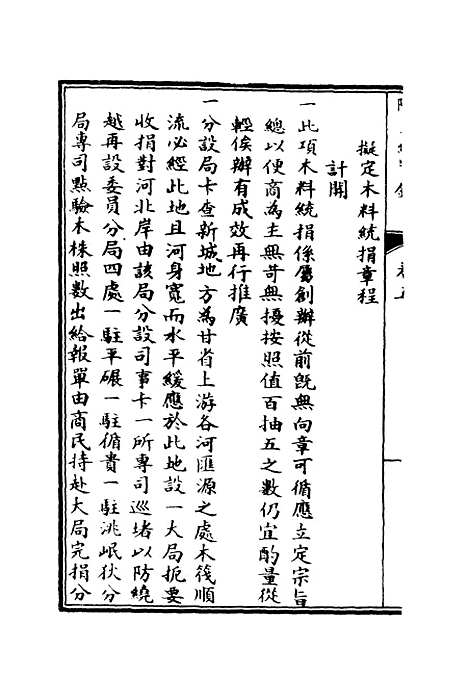 擬定木料統捐章程
計開
一此項木料統捐係屬創辦從前旣無向章可循應立定宗旨
總以便商為主無苛無擾按照值百抽五之數仍宜酌量從
輕俟辦有成效再行推廣
一分設局卡查新城地方為甘省上游各河匯源之處木筏順
流必經此地且河身寬而水平緩應於此地設一大局扼要
收捐對河北岸由該局分設司事卡一所專司巡堵以防繞
越再設委員分局四處一駐平碾一駐循貴一駐洮岷狄分
局專司點驗木株照數出給報單由商民持赴大局完捐分